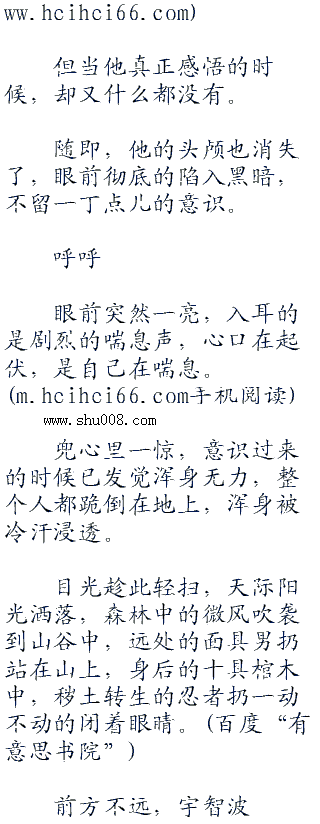 ww.hcihci66.com)
但当他真正感悟的时
候，却又什么都没有。
随即，他的头颅也消失
了，眼前彻底的陷入黑暗，
不留一丁点儿的意识。
呼呼
眼前突然一亮，入耳的
是剧烈的喘息声，心口在起
伏，是自己在喘息。
(m.hcihci66.com手机阅读)
www.shu008.com
兜心里一惊，意识过来
的时候已发觉浑身无力，整
个人都跪倒在地上，浑身被
冷汗浸透。
目光趁此轻扫，天际阳
光洒落，森林中的微风吹袭
到山谷中，远处的面具男扔
站在山上，身后的十具棺木
中，秽土转生的忍者扔一动
不动的闭着眼睛。(百度“有
意思书院”)
前方不远，宇智波